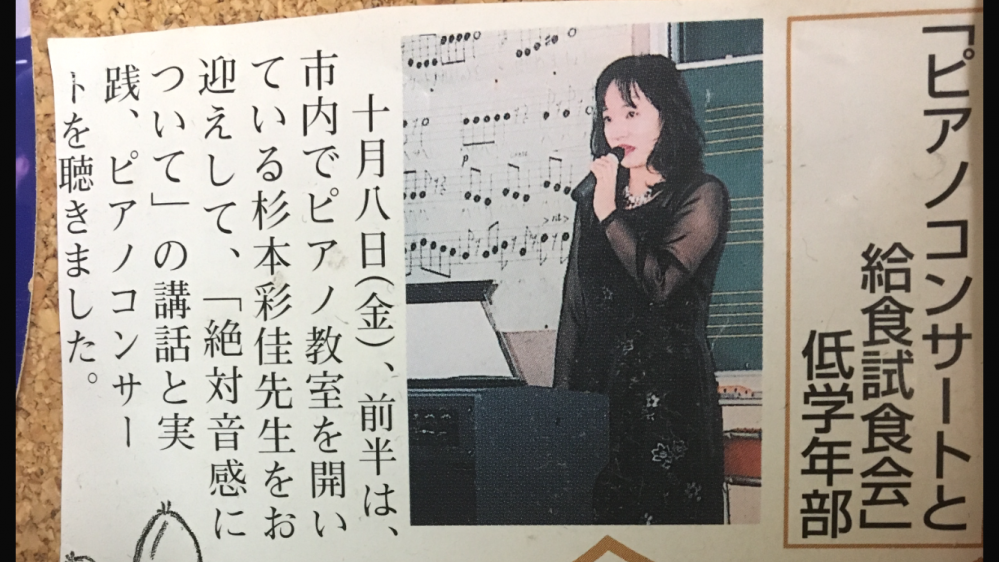 「ピアノコンサートと
給食試食会」
低学年部
十月八日(金)、前半は、
市内でピアノ教室を開い
ている杉本彩佳先生をお
迎えして、「絶対音感に
ついて」の講話と実
践、ピアノコンサー
トを聴きました。